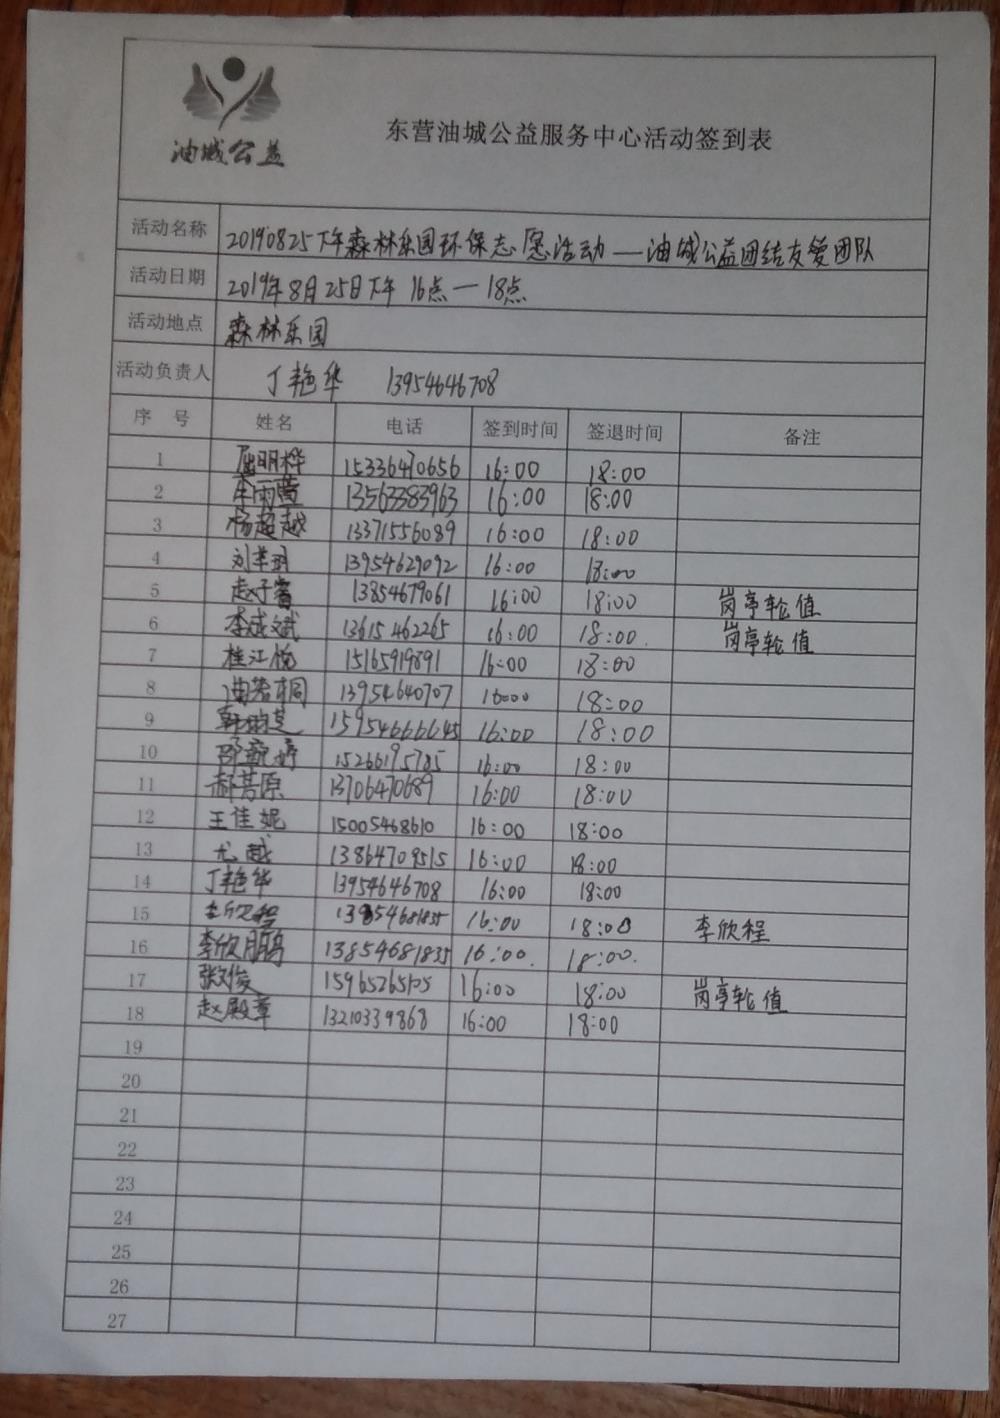 油城公益
东营油城公益服务中心活动签到表
活动名称 20190825下午森林乐园环保志愿活动——油城公益团结友爱团队
活动日期 2019年8月25日下午 16点—18点
活动地点 森林乐园
活动负责人 丁艳华 13954646708
序 号 姓名 电话 签到时间 签退时间 备注
1 屈明桦 15336470656 16:00 18:00
2 13563383963 16:00 18:00
3 杨超越 13371556089 16:00 18:00
4 13954629092 16:00 18:00
5 赵子睿 13854679061 16:00 18:00 岗亭轮值
6 李成斌 13615462265 16:00 18:00. 岗亭轮值
7 桂江悦 15165919891 16:00 18:00
8 曲若桐 13954640707 16:00 18:00
9 159546666645 16:00 18:00
10 15266195785 16:00 18:00
11 郝苦原 13706470689 16:00 18:00
12 王佳妮 15005468610 16:00 18:00
13 尤越 13864709515 16:00 18:00
14 丁艳华 13954646708 16:00 18:00
15 李欣程 16:00 18:00 李欣程
16 李欣鹏 13854681835 16:00. 18:00.
17 张文俊 15965265105 16:00 18:00 岗亭轮值
18 赵殿章 13210339868 16:00 18:00
19
20
21
22
23
24
25
26
27